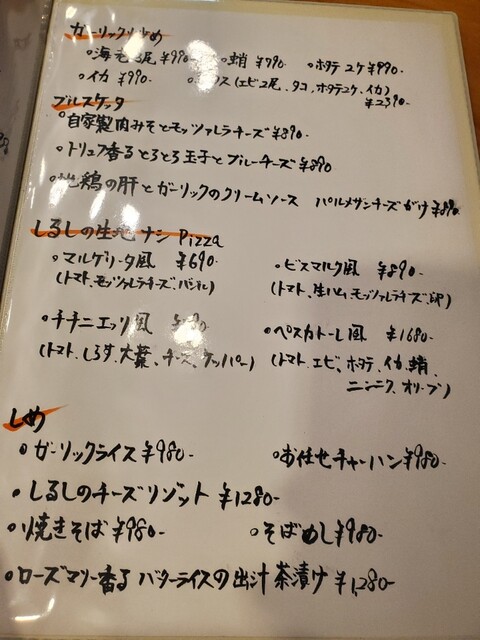 ガーリック炒め
・海老2尾 ¥990- ・蛸 ¥790- ・ホタテ 2ケ ¥990-
・イカ ¥990- (エビ2尾、タコ、ホタテ2ケ、イカ)
¥2390-
ブルスケッタ
・自家製肉みそとモッツァレラチーズ ¥890-
・トリュフ香るとろとろ玉子とブルーチーズ ¥890
・地鶏の肝とガーリックのクリームソース パルメザンチーズがけ ¥890
しるしの生地ナシ Pizza
・マルゲリータ風 ¥690- ・ビスマルク風 ¥890-
(トマト、モッツァレラチーズ、バジル) (トマト、生ハム、モッツァレラチーズ、卵)
・チチニエッリ風 ・ペスカトーレ風 ¥1680-
(トマト、しらす、大葉、チーズ、ケッパー) (トマト、エビ、ホタテ、イカ、蛸、
ニンニク、オリーブ)
しめ
・ガーリックライス ¥980- ・お任せチャーハン ¥980-
・しるしのチーズリゾット ¥1280-
・焼きそば ¥980- ・そばめし ¥980-
・ローズマリー香る バターライスの出汁茶漬け ¥1,280-